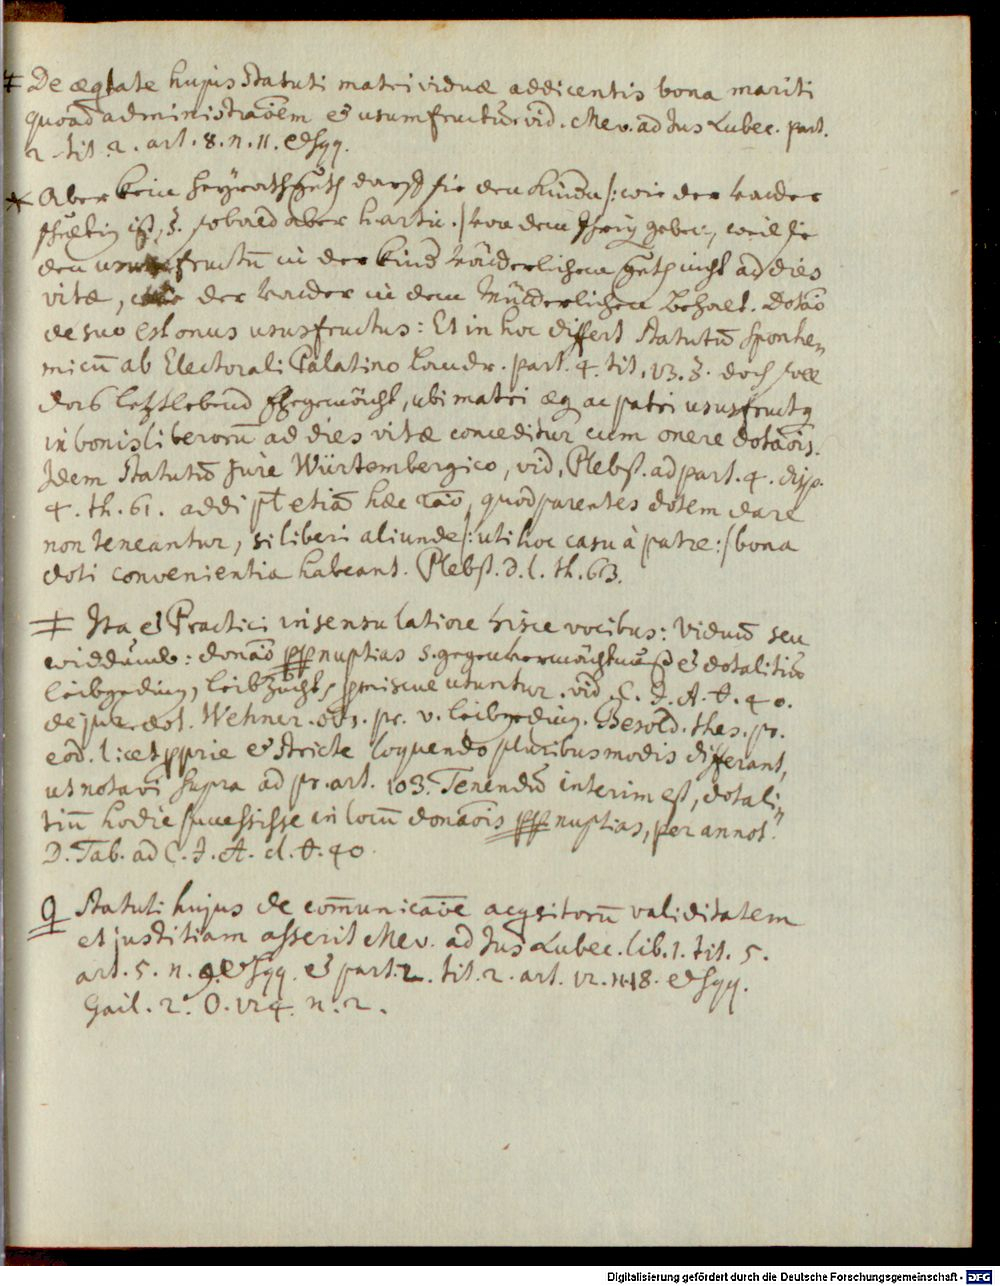 ‡ De æqtate hujus Statuti matri viduæ addicentis bona mariti
quoad administraõem et usumfructũ vid. Mev. ad Jus Lubec. part.
2. tit. 2. art. 8. n. 11. et sqq.
* Aber kein heyrathguth darff sie den Kindn /: wie der Vatter
schuldig ist, §. sobald aber hartu. / von dem Ihrig geben, weil sie
den usumfructũ in der Kind Vätterlichem Guth nicht ad dies
vitæ, wie der Vatter in dem Mütterlichen behalt. Dotaõ
de suo est onus ususfructus: Et in hoc differt Statutũ Sponhe-
micũ ab Electorali Palatino Landr. part. 4. tit. 13. §. doch soll
das letztlebend Ehegemächt, ubi matri æq ac patri ususfructq
in bonis liberorũ ad dies vitæ conceditur cum onere dotaõis.
Idem Statutũ Jure Würtembergico, vid. Plebst. ad part. 4. disp.
4. th. 61. addi pt etiã hæc raõ, quod parentes dotem dare
non teneantur, si liberi aliunde /: uti hoc casu à patre :/ bona
doti convenientia habeant. Plebst. d. l. th. 63.
‡ Ita et Practici in sensu latiore hisce vocibus: Viduũ seu
widdumb: donaõ ppp nuptias s. gegenvermächtnuß et dotalitiũ
leibgeding, leibzucht, pmiscue utuntur. vid. C. J. A. t. 40.
de jur. dot. Wehner. obs. pr. v. leibgeding. Besold. thes. pr.
eod. licet pprie et stricte loquendo pluribus modis differant,
ut notavi supra ad pr. art. 103. Tenendũ interim est, dotali-
tiũ hodie successisse in locũ donaõis ppp nuptias, per annot.
D. Tab. ad C. J. A. d. t. 40.
Q Statuti hujus de com̃unicaõe acqsitorũ validitatem
et justitiam asserit Mev. ad Jus Lubec. lib. 1. tit. 5.
art. 5. n. 9. et sqq. et part. 2. tit. 2. art. 12. n. 18. et sqq.
Gail. 2. O. 124. n. 2.
Digitalisierung gefördert durch die Deutsche Forschungsgemeinschaft - DFG